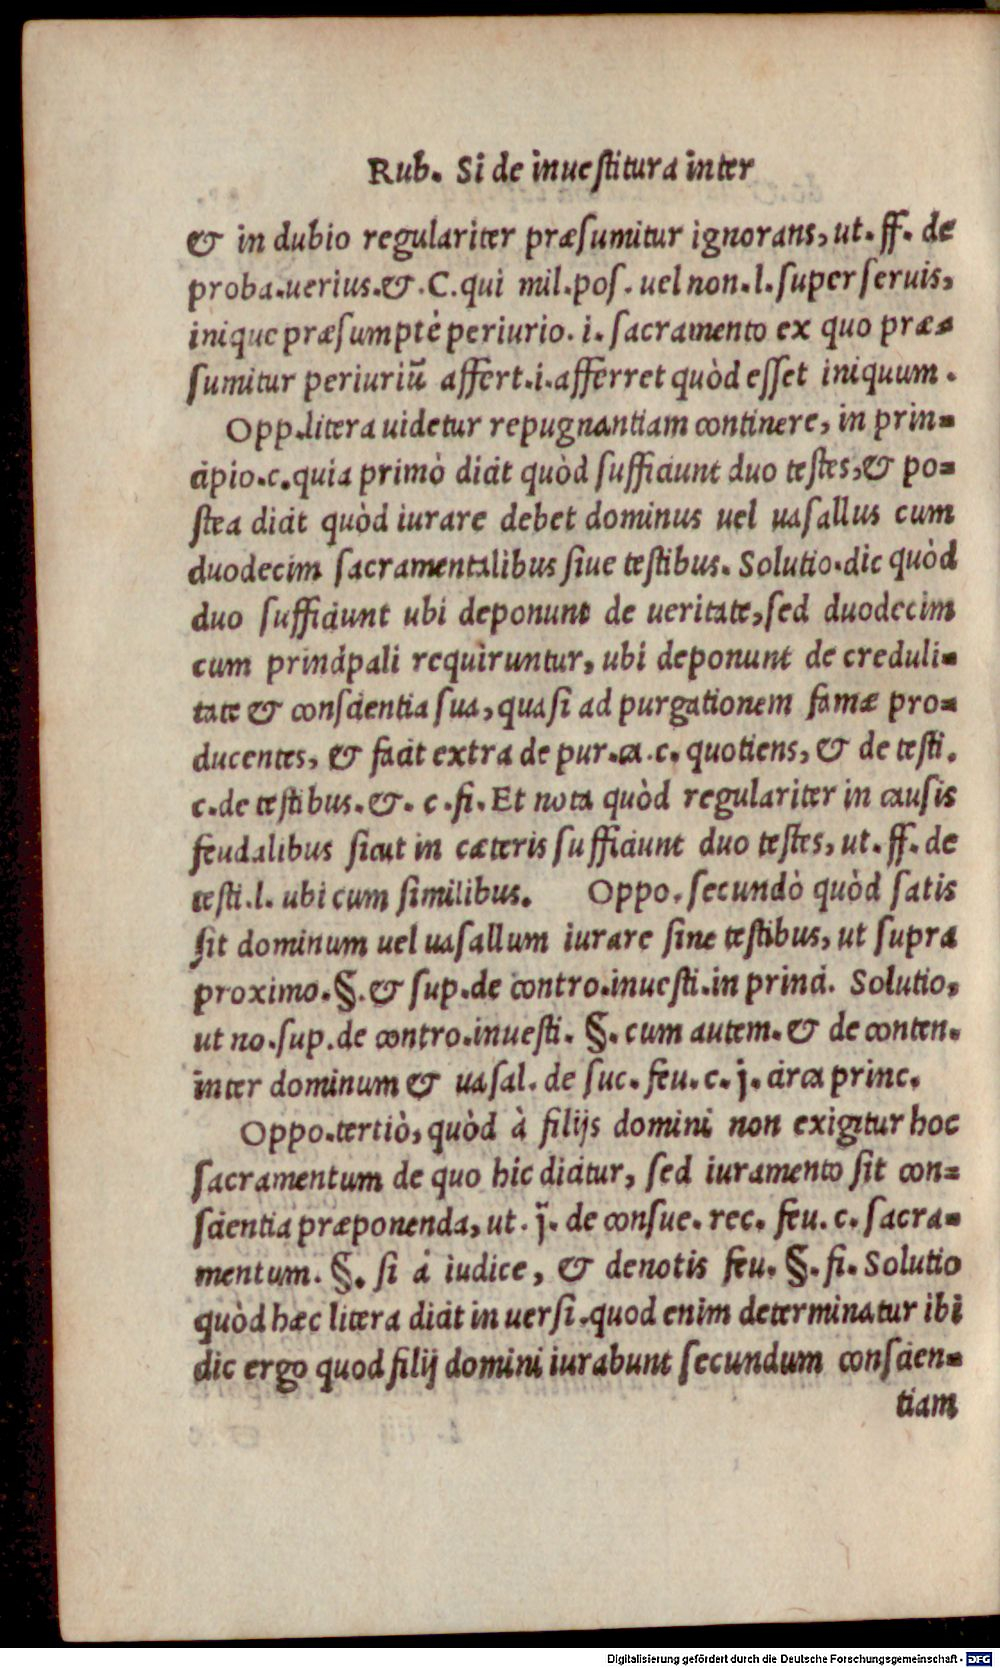 Rub. Si de inuestitura inter
& in dubio regulariter præsumitur ignorans, ut. ff. de
proba. uerius. &. C. qui mil. pos. uel non. l. super seruis,
inique præsumptè periurio. i. sacramento ex quo præ=
sumitur periuriũ affert. i. afferret quòd esset iniquum.
Opp. litera uidetur repugnantiam continere, in prin=
cipio. c. quia primò dicit quòd sufficiunt duo testes, & po=
stea dicit quòd iurare debet dominus uel uasallus cum
duodecim sacramentalibus siue testibus. Solutio. dic quòd
duo sufficiunt ubi deponunt de ueritate, sed duodecim
cum principali requiruntur, ubi deponunt de creduli=
tate & conscientia sua, quasi ad purgationem famæ pro=
ducentes, & facit extra de pur. ca. c. quotiens, & de testi.
c. de testibus. &. c. fi. Et nota quòd regulariter in causis
feudalibus sicut in cæteris sufficiunt duo testes, ut. ff. de
testi. l. ubi cum similibus. Oppo. secundò quòd satis
sit dominum uel uasallum iurare sine testibus, ut supra
proximo. §. & sup. de contro. inuesti. in princi. Solutio,
ut no. sup. de contro. inuesti. §. cum autem. & de conten.
inter dominum & uasal. de suc. feu. c. j. circa princ.
Oppo. tertiò, quòd à filijs domini non exigitur hoc
sacramentum de quo hic dicitur, sed iuramento sit con=
scientia præponenda, ut. j̃. de consue. rec. feu. c. sacra=
mentum. §. si à iudice, & de notis feu. §. fi. Solutio
quòd hæc litera dicit in uersi. quod enim determinatur ibi
dic ergo quod filij domini iurabunt secundum conscien=
tiam
Digitalisierung gefördert durch die Deutsche Forschungsgemeinschaft - DFG